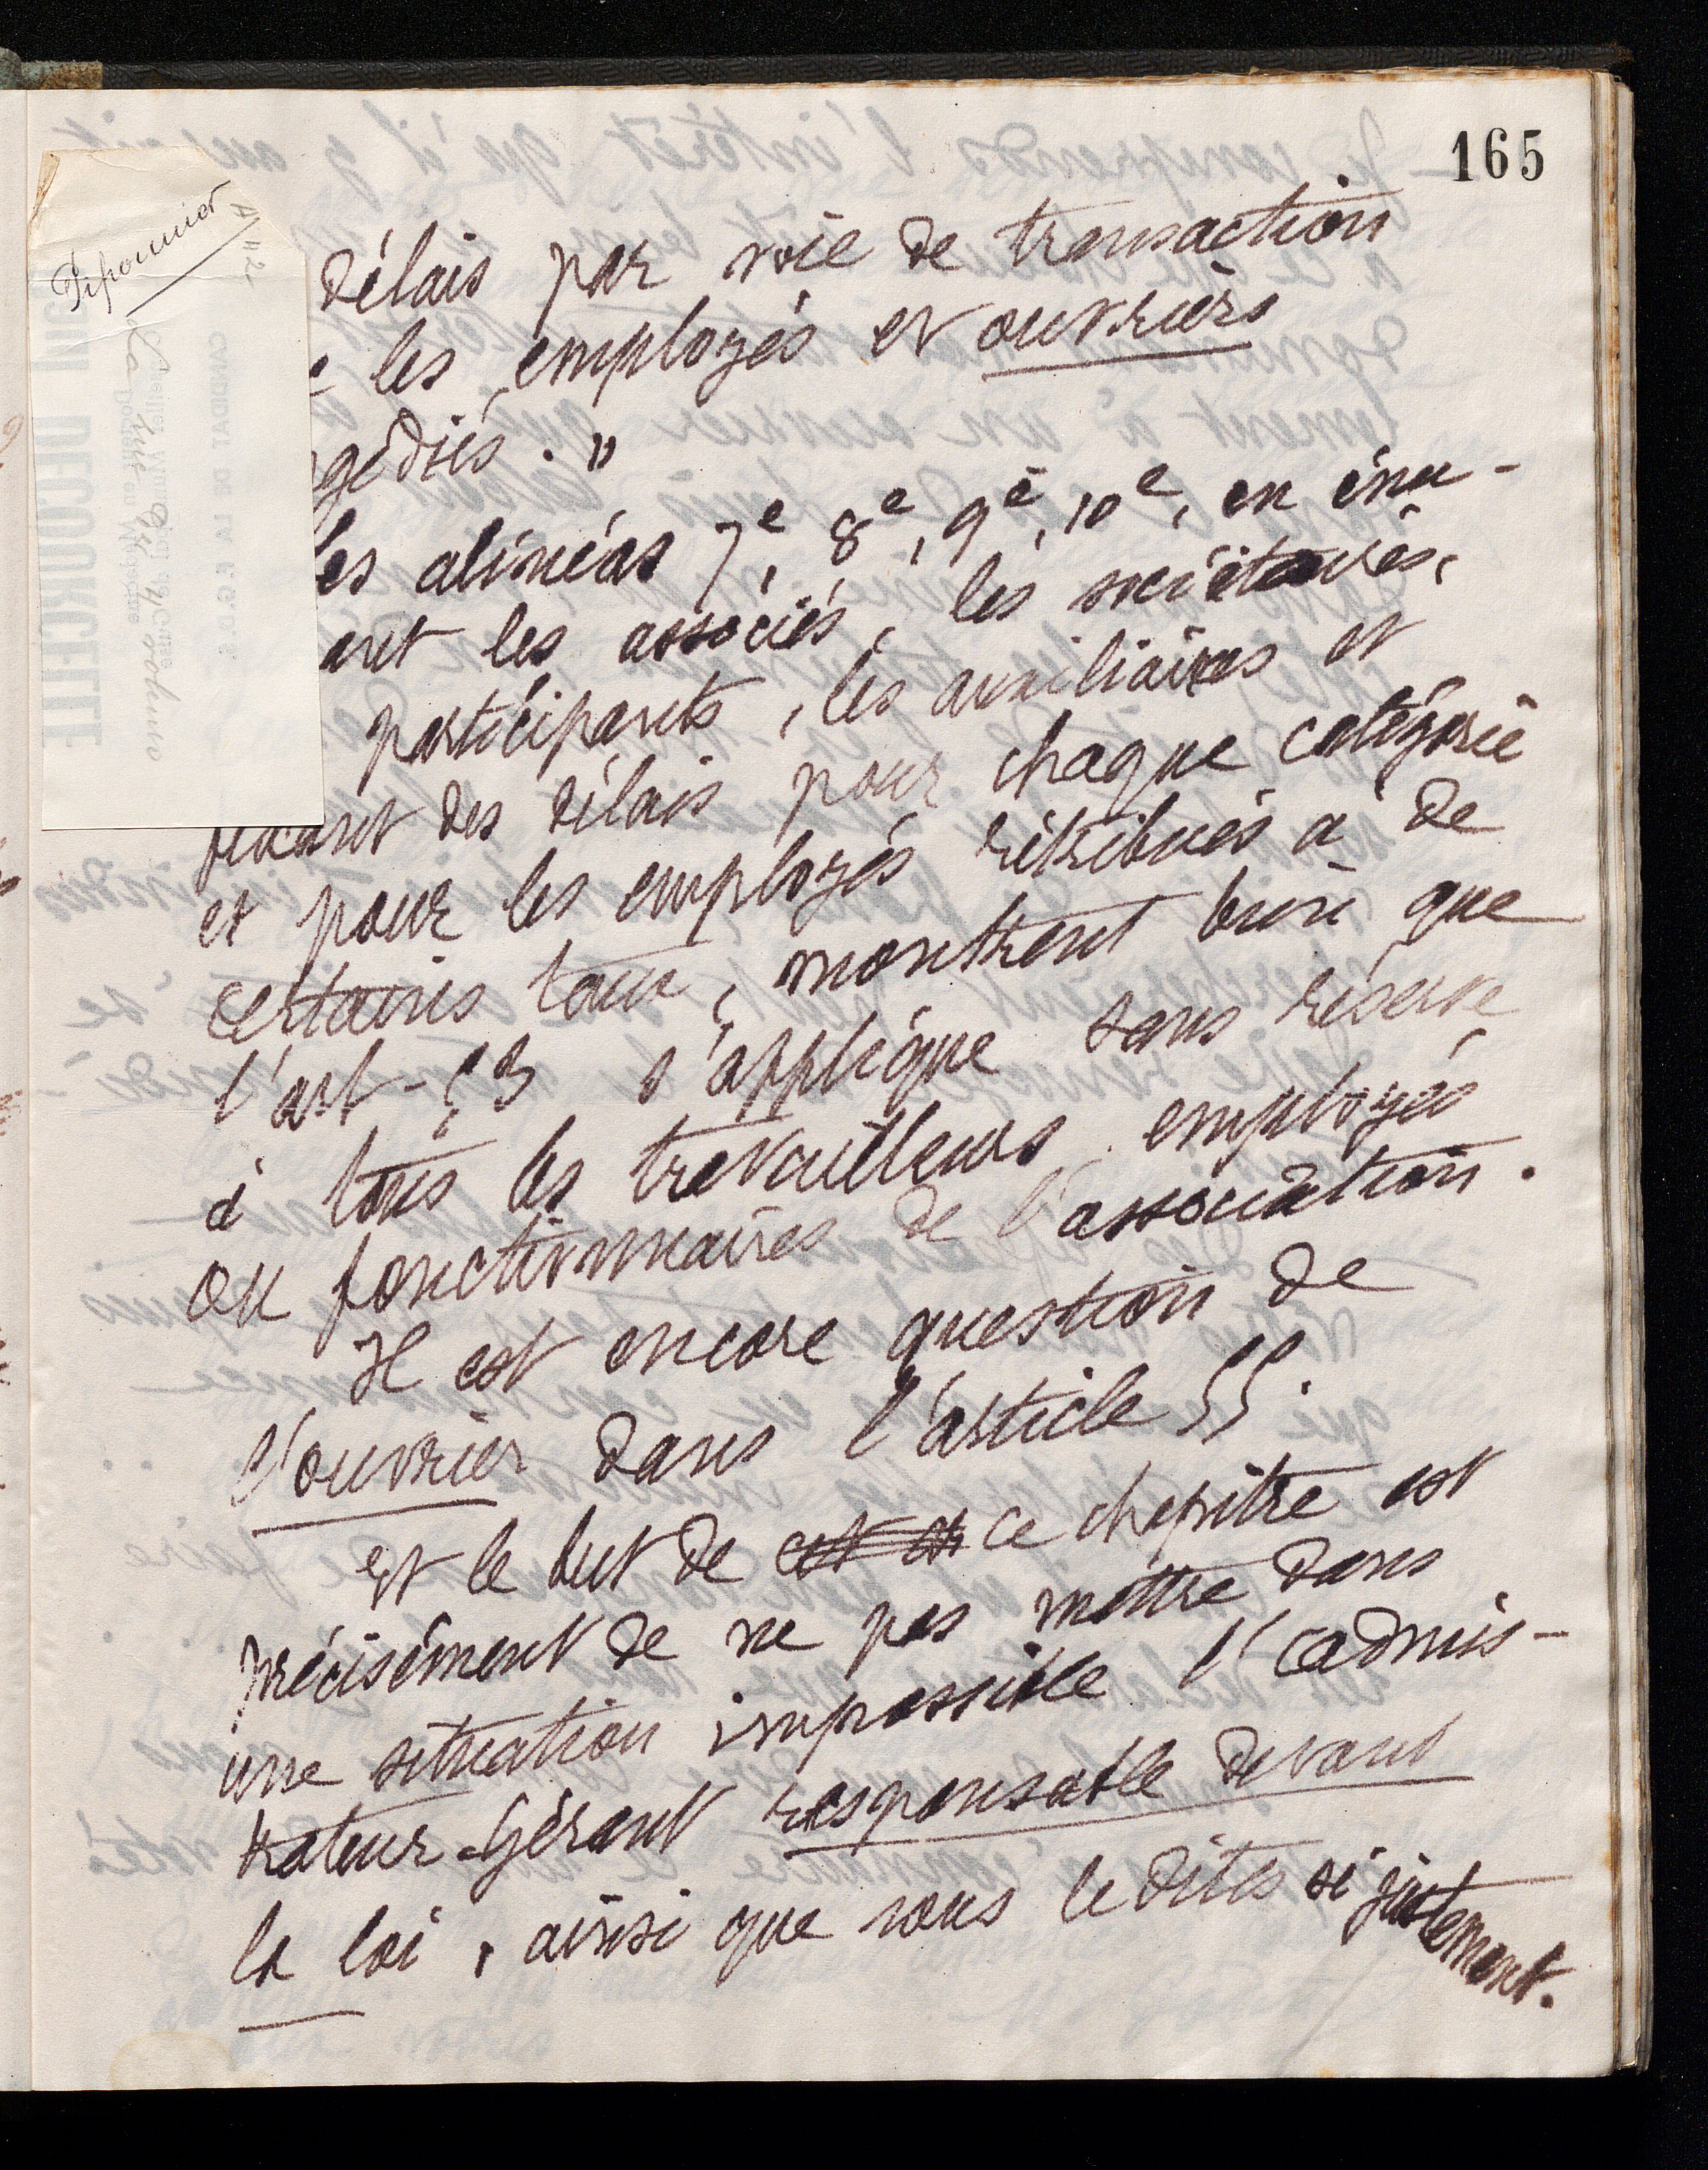 165
Piponnier
délais par voie de transaction
les employés et ouvriers
gédiés. "
les alinéas 7e, 8e, 9e, 10e, en énu-
ant les associés, les sociétaires,
participants, les auxiliaires et
fixant des délais pour chaque catégorie
et pour les employés rétribués à de
certains taux, montrent bien que
l'art. 53 s'applique sans réserve
à tous les travailleurs employés
ou fonctionnaires de l'association.
Il est encore question de
l'ouvrier dans l'article 55.
Et le but de ce chapitre est
précisément de ne pas mettre dans
une situation impossible l'adminis-
trateur-Gérant responsable devant
la loi, ainsi que vous le dites si justement.